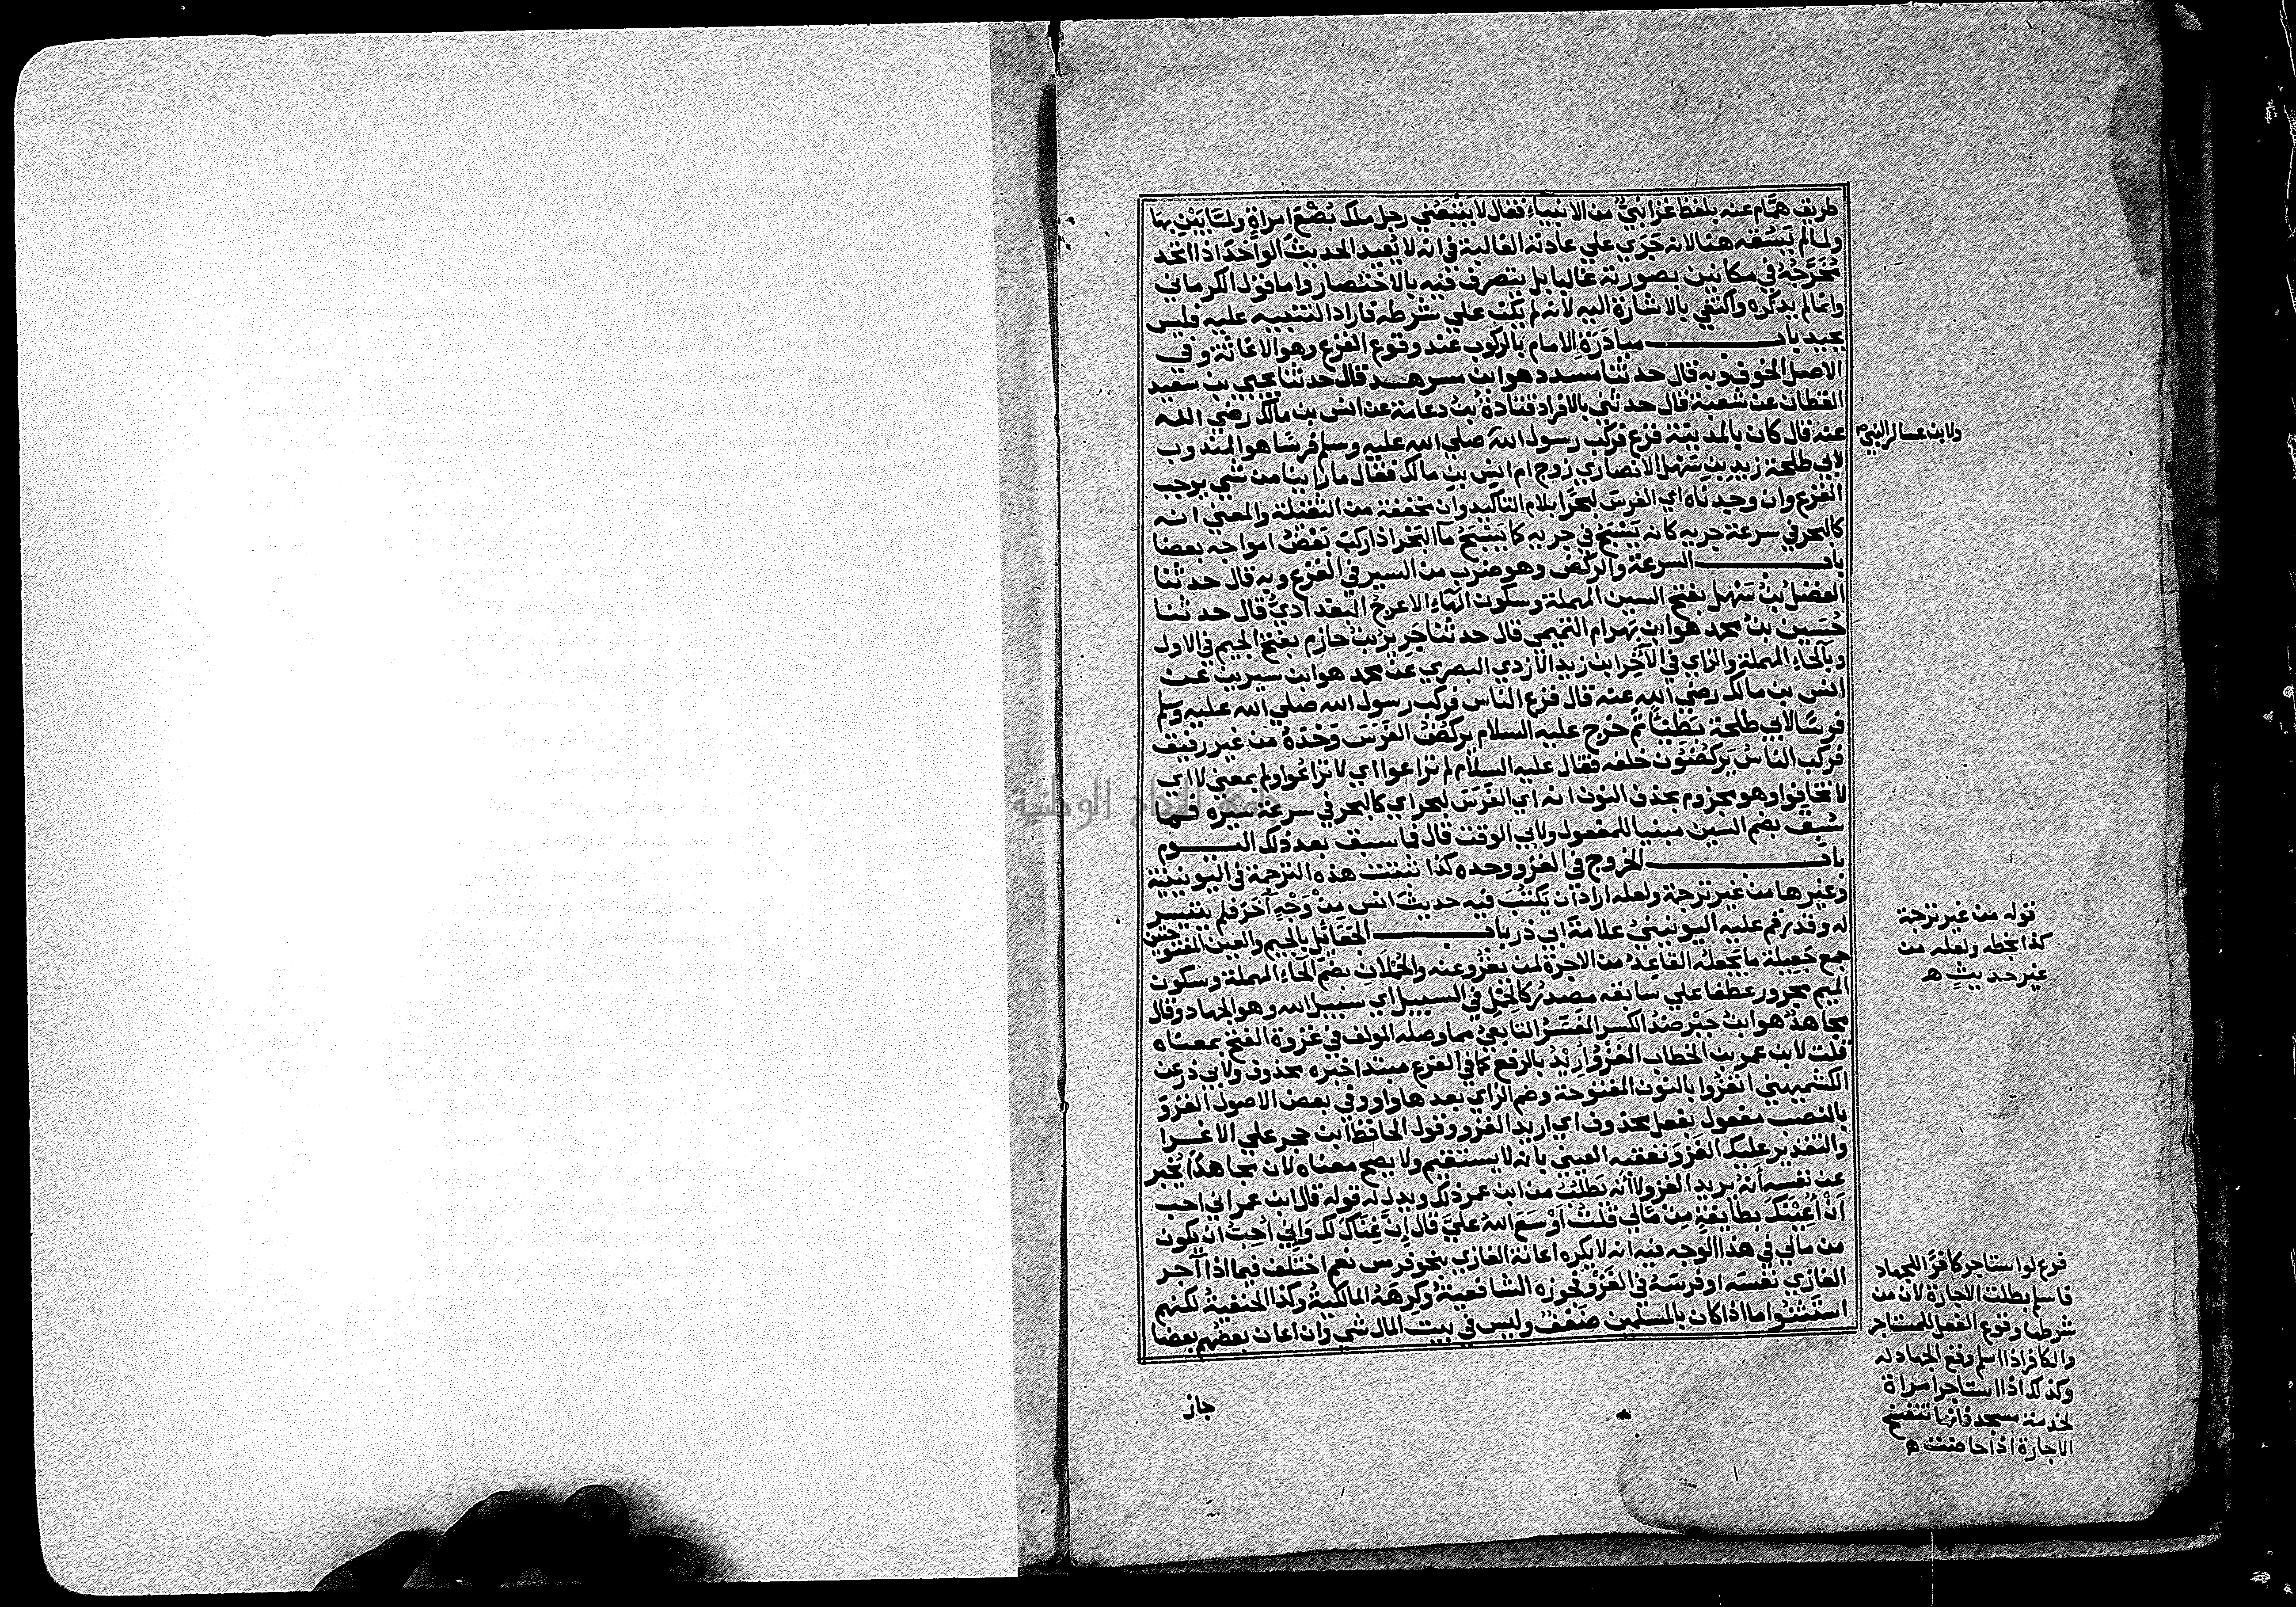 طريق همّام عنه بلفظ غزا نبيّ من الانبياء فقال لا يَتْبَعْني رجل ملك بُضْعَ امراةٍ ولمّا يَبْنِ بها
ولما لم يَسُقه هنا لانه جَرَي علي عادته الغالبة في انه لا يُعيد الحديثَ الواحدَ اذا اتحد
مَخْرَجُه في مكانين بصورته غالبا بل يتصرف فيه بالاختصار واما قول الكرماني
وانما لم يذكره واكتفي بالاشارة اليه لانه لم يكن علي شرطه فاراد التنبيه عليه فليس
بجيد باب مبادَرَةِ الامام بالركوب عند وقوع الفزع وهو الاغاثة وفي
الاصل الخوف وبه قال حدثنا مسدد هو ابن مسرهد قال حدثنا يحيي بن سعيد
القطان عن شعبة قال حدثني بالافراد قتادةُ بنُ دعامة عن انس بن مالك رضي الله
عنه قال كان بالمدينة فزع فركب رسول الله صلي الله عليه وسلم فرسًا هو المندوب
لابي طلحة زيدِ بنِ سَهْل الانصاري زوج ام انس بن مالك فقال ما راينا من شي يوجب
الفزع وان وجدناه اي الفرسَ لبَحْرًا بلام التاكيد وان مخففة من الثقيلة والمعني انه
كالبحر في سرعة جريه كانه يَسْبَحُ في جريه كما يَسْبَحُ ماء البَحْر اذا ركب بَعْضُ امواجه بعضا
باب السرعة والركض وهو ضرب من السير في الفزع وبه قال حدثنا
الفضلُ بنُ سَهْل بفتح السين المهملة وسكون الهاء الاعرجُ البغداديُّ قال حدثنا
حُسَين بنُ محمد هو ابن بَهرام التميمي قال حدثنا جَرِيرُ بنُ حازم بفتح الجيم في الاول
وبالحاء المهملة والزاي في الآخِر ابن زيد الازدي البصري عن محمد هو ابن سيرين عن
انس بن مالك رضي الله عنه قال فزع الناس فركب رسول الله صلي الله عليه وسلم
فرسًا لابي طلحة بَطِيئًا ثم خرج عليه السلام يركُضُ الفَرَسَ وَحْدَهُ من غير رفيق
فركب الناسُ يَركُضُون خلفه فقال عليه السلام لم تراعوا اي لا تراعُوا ولم بمعني لا اي
لا تخافوا وهو مجزوم بحذف النون انه اي الفَرَسَ لبحر اي كالبحر في سرعة سَيْره فما
سُبِق بضم السين مبنيا للمفعول ولابي الوقت قال فما سبق بعد ذلك اليوم
باب الخروج في الفزع وحده كذا ثبتت هذه الترجمة في اليونينية
وغيرها من غير ترجمة ولعله اراد ان يَكتُبَ فيه حديثَ انس مِنْ وَجْهٍ آخَرَ فلم يتيسر
له وقد رقم عليه اليونينيُّ علامةَ ابي ذر باب الجَعَائل بالجيم والعين المفتوحتين
جمع جَعِيلة ما يَجعلُه القاعِدُ من الاجرة لمن يغزُو عنه والحُمْلان بضم الحاء المهملة وسكون
الميم مجرور عطفا علي سابقه مصدرٌ كالحَمْل في السبيل اي سبيل الله وهو الجهاد وقال
مجاهدٌ هو ابنُ جَبْر ضدُ الكسر المفسّرُ التابعيُّ مما وصله المولف في غزوة الفتح بمعناه
قلت لابن عمر بن الخطاب الغَزْوُ اُرِيدُ بالرفع كما في الفرع مبتدا خبره محذوف ولابي ذر عن
الكشميهني انغزُوا بالنون المفتوحة وضم الزاي بعدها واو وفي بعض الاصول الغزوَ
بالنصب مفعول بفعل محذوف اي اريد الغزو وقول الحافظ ابن حجر علي الاغرا
والتقدير عليك الغَزوَ تعقبه العيني بانه لا يستقيم ولا يصح معناه لان مجاهدًا يُخبر
عن نفسه أنه يريد الغزو لا أنه يَطلُبُ من ابن عمر ذلك ويدل له قوله قال ابن عمر اني احب
اَنْ اُعِينَكَ بطايفةٍ مِن مَالي قلتُ اَوْسَعَ اللهُ عليَّ قال إنَّ غِناكَ لك وَاِني اُحِبُّ ان يكون
من مالي في هذا الوجه فيه انه لا يكره اعانة الغازي بنحو فرس نعم اختلف فيما اذا آجر
الغازي نفسَه او فرسَهُ في الغَزْو فجوزه الشافعيةُ وكَرِهَهُ المالكيةُ وكذا الحنفيةُ لكنهم
استَثنَوا ما اذا كان بالمسلمين ضَعْفٌ وليس في بيت المال شي وان اعان بعضُهم بعضا
جاز
ولابن عساكر النبي
قوله من غير ترجمة
كذا بخطه ولعله من
غير حديثٍ ه
فرع لو استاجر كافرًا للجهاد
فاسلم بطلت الاجارة لان من
شرطها وقوع الفعل للمستاجر
والكافر اذا اسلم وقع الجهاد له
وكذلك اذا استاجر امراة
لخدمة مسجد فانها تنفسخ
الاجارة اذا حاضت ه
الوطنية